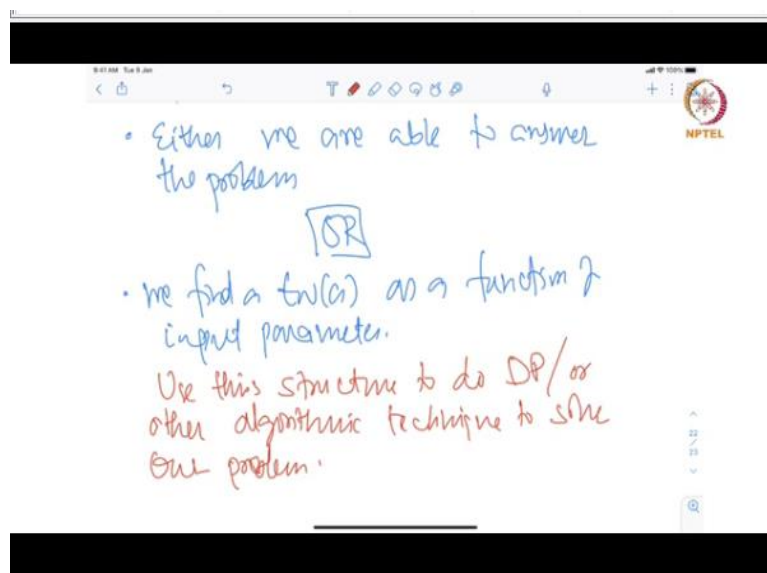 9:41 AM Tue 9 Jan
100%
T
NPTEL
• Either we are able to answer
the problem
OR
• we find a tw(G) as a function of
input parameter.
Use this structure to do DP/or
other algorithmic technique to solve
our problem.
22
23